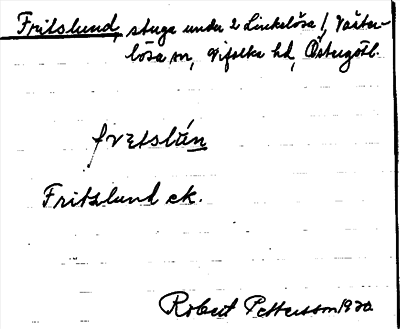 Fritslund, stuga under 2 Linkelösa /, Väster-
lösa sn, Vifolka hd, Östergötl.
frɛtslún
Fritslund ek.
Robert Pettersson 1920